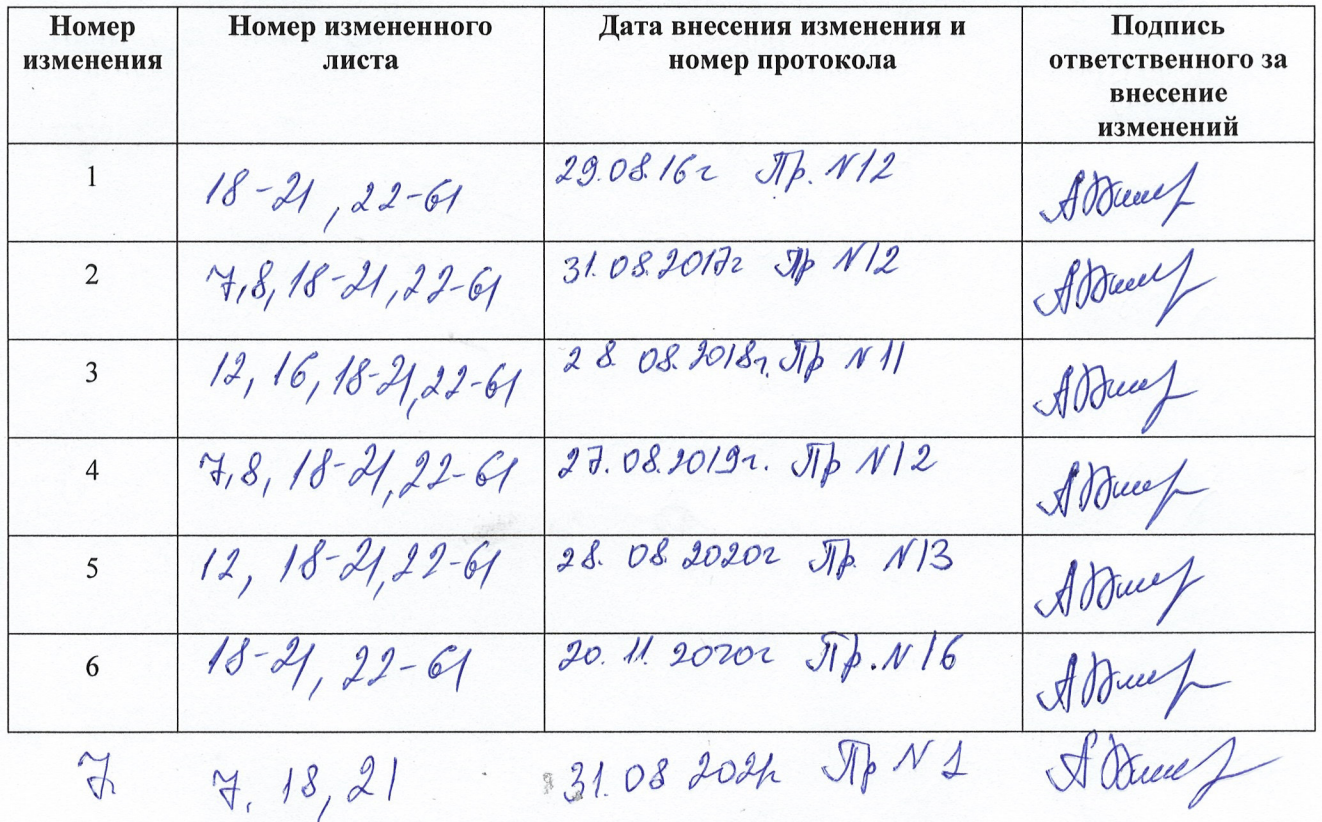 Номер изменения Номер измененного листа Дата внесения изменения и номер протокола Подпись ответственного за внесение изменений
1 18-21, 22-61 29.08.16г Пр. N12
2 7,8,18-21,22-61 31.08.2017г Пр N12
3 12, 16, 18-21,22-61 28.08.2018г. Пр N11
4 7,8, 18-21,22-61 27.08.2019г. Пр N12
5 12, 18-21,22-61 28. 08. 2020г Пр. N13
6 18-21, 22-61 20. 11. 2020г Пр. N16
7. 7, 18, 21 31.08 2021г Пр N 1